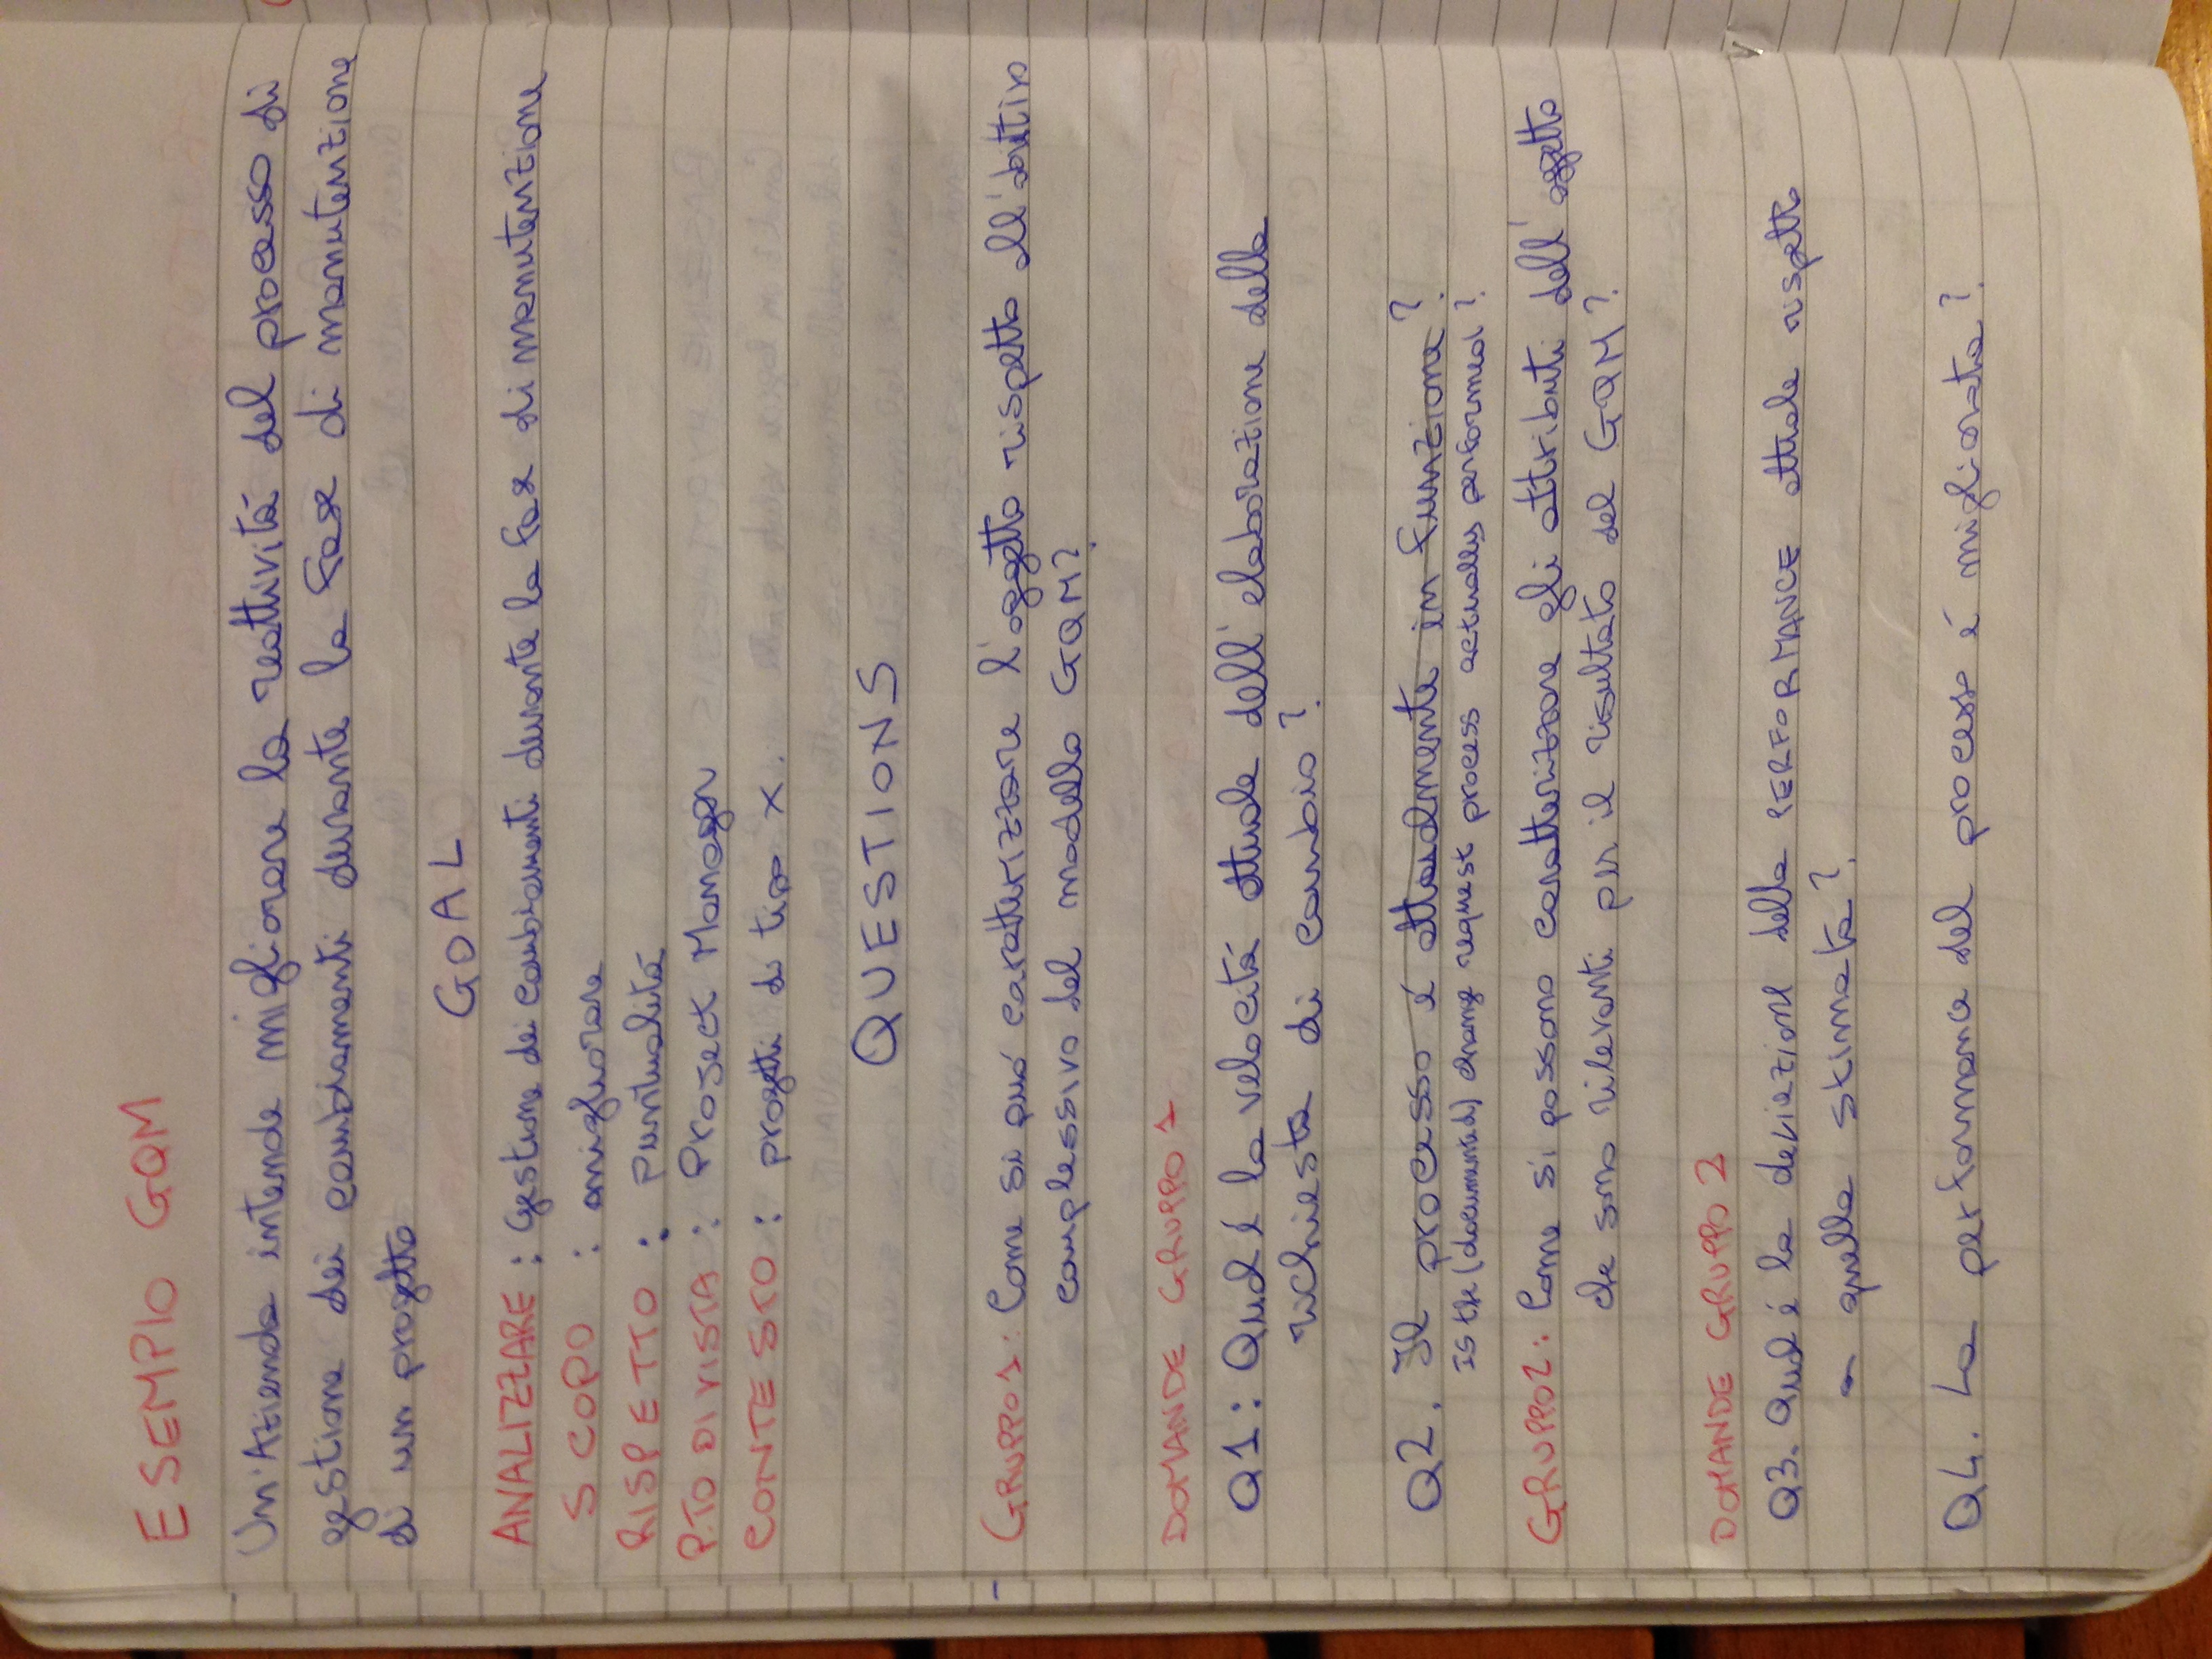 ESEMPIO GQM
Un'Azienda intende migliorare la reattivitá del processo di
gestione dei cambiamenti durante la fase di manutenzione
di un progetto
GOAL
ANALIZZARE : Gestione dei cambiamenti durante la fase di manutenzione
SCOPO : migliorare
RISPETTO : puntualitá
P.TO DI VISTA : Project Manager
CONTESTO : progetti di tipo X.
QUESTIONS
GRUPPO 1: Come si puó caratterizzare l'oggetto rispetto all'obiettivo
complessivo del modello GQM?
DOMANDE GRUPPO 1
Q1: Qual é la velocitá attuale dell'elaborazione della
richiesta di cambio?
Q2. Il processo é attualmente in funzione?
IS the (documented) change request process actually performed?
GRUPPO 2: Come si possono caratterizzare gli attributi dell'oggetto
che sono rilevanti per il risultato del GQM?
DOMANDE GRUPPO 2
Q3. Qual é la deviazione della PERFORMANCE attuale rispetto
a quella stimata?
Q4. La performance del processo é migliorata?